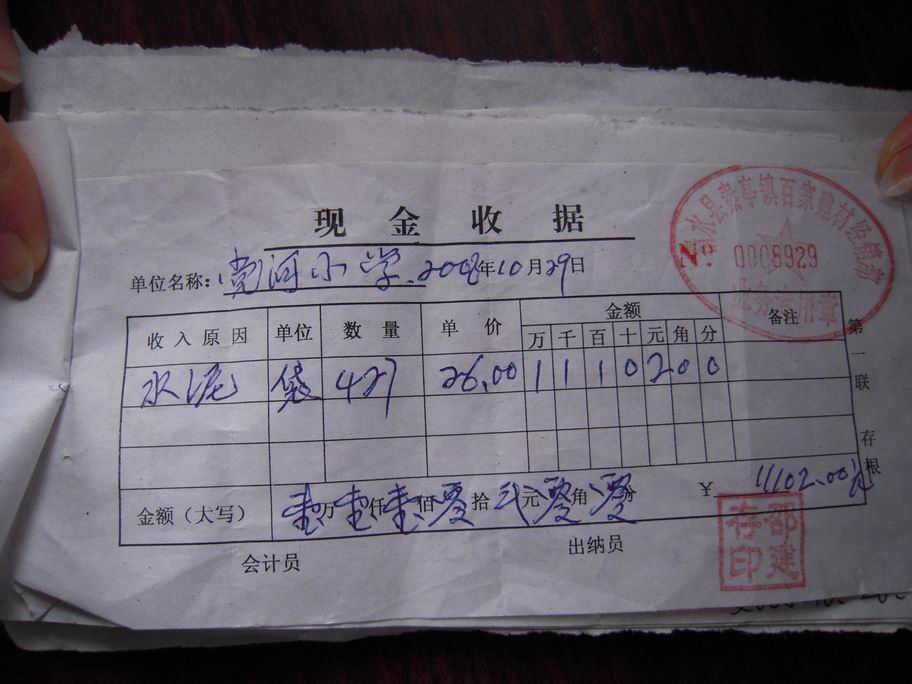 现金收据
水县 亭镇百家建材经销部
№ 0008929
业务专用章
单位名称: 党河小学 2008年10月29日
收入原因 单位 数量 单价 金额 备注
万 千 百 十 元 角 分
水泥 袋 427 26.00 1 1 1 0 2 0 0
金额（大写） 壹万壹仟壹佰零拾贰元零角零分 ￥ 11102.00元
第一联 存根
会计员 出纳员
邵建存印